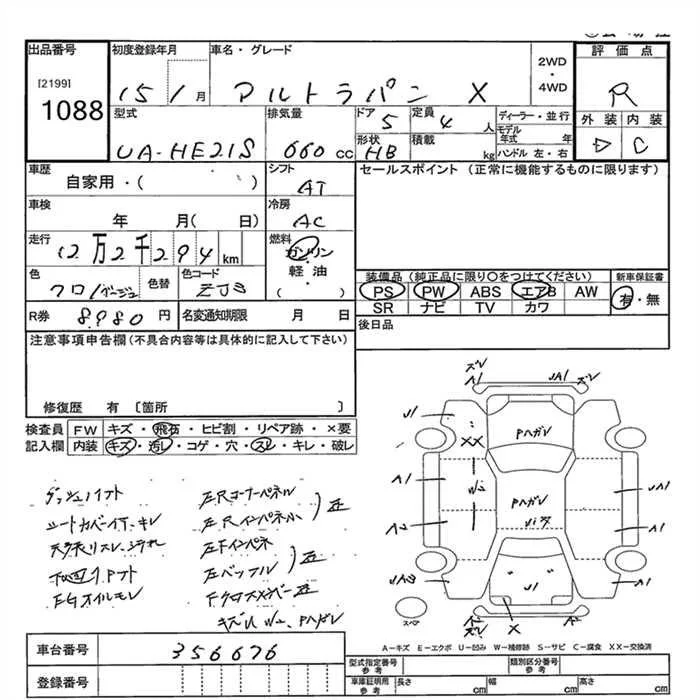 出品番号 初度登録年月 車名・グレード 評価点
[2199]
1088
15 1月 アルトラパン X
2WD・4WD
R
外装 内装
D C
型式 排気量 ドア 定員 ディーラー・並行
UA-HE21S 660cc 5 4人
モデル年式 年
形状 積載 ハンドル 左・右
HB kg
車歴 シフト セールスポイント(正常に機能するものに限ります)
自家用・( ) AT
車検 冷房
年 月( 日) AC
走行 燃料
12万2千294km ガソリン・軽油・( )
装備品(純正品に限り○をつけてください) 新車保証書
PS PW ABS エアB AW 有・無
SR ナビ TV カワ
色 色替 色コード
クロ/ベージュ ZJ3
R券 8,980円 名変通知期限 月 日
後日品
注意事項申告欄(不具合内容等は具体的に記入して下さい)
修復歴 有 〔箇所 〕
検査員 FW キズ・飛石・ヒビ割・リペア跡・×要
記入欄 内装 キズ・汚レ・コゲ・穴・スレ・キレ・破レ
ズレ A1 UA1 ズレ
U1 Pハガレ
XX
W2 A1 UA1
Pハガレ
A2 A1
U1
X X
スペア
シートカバー付、キレ
天張リスレ、ヨゴレ
EGオイルモレ
左Rコーナーパネル
左Rインパネ
左Fインパネ
左バッフル
Fクロスメンバー歪
キズU W2、Pハガレ
A-キズ E-エクボ U-凹み W-補修跡 S-サビ C-腐食 XX-交換済
車台番号 356676
登録番号
型式指定番号 参考 類別区分番号 参考
車庫証明用 参考 長さ cm 幅 cm 高さ cm